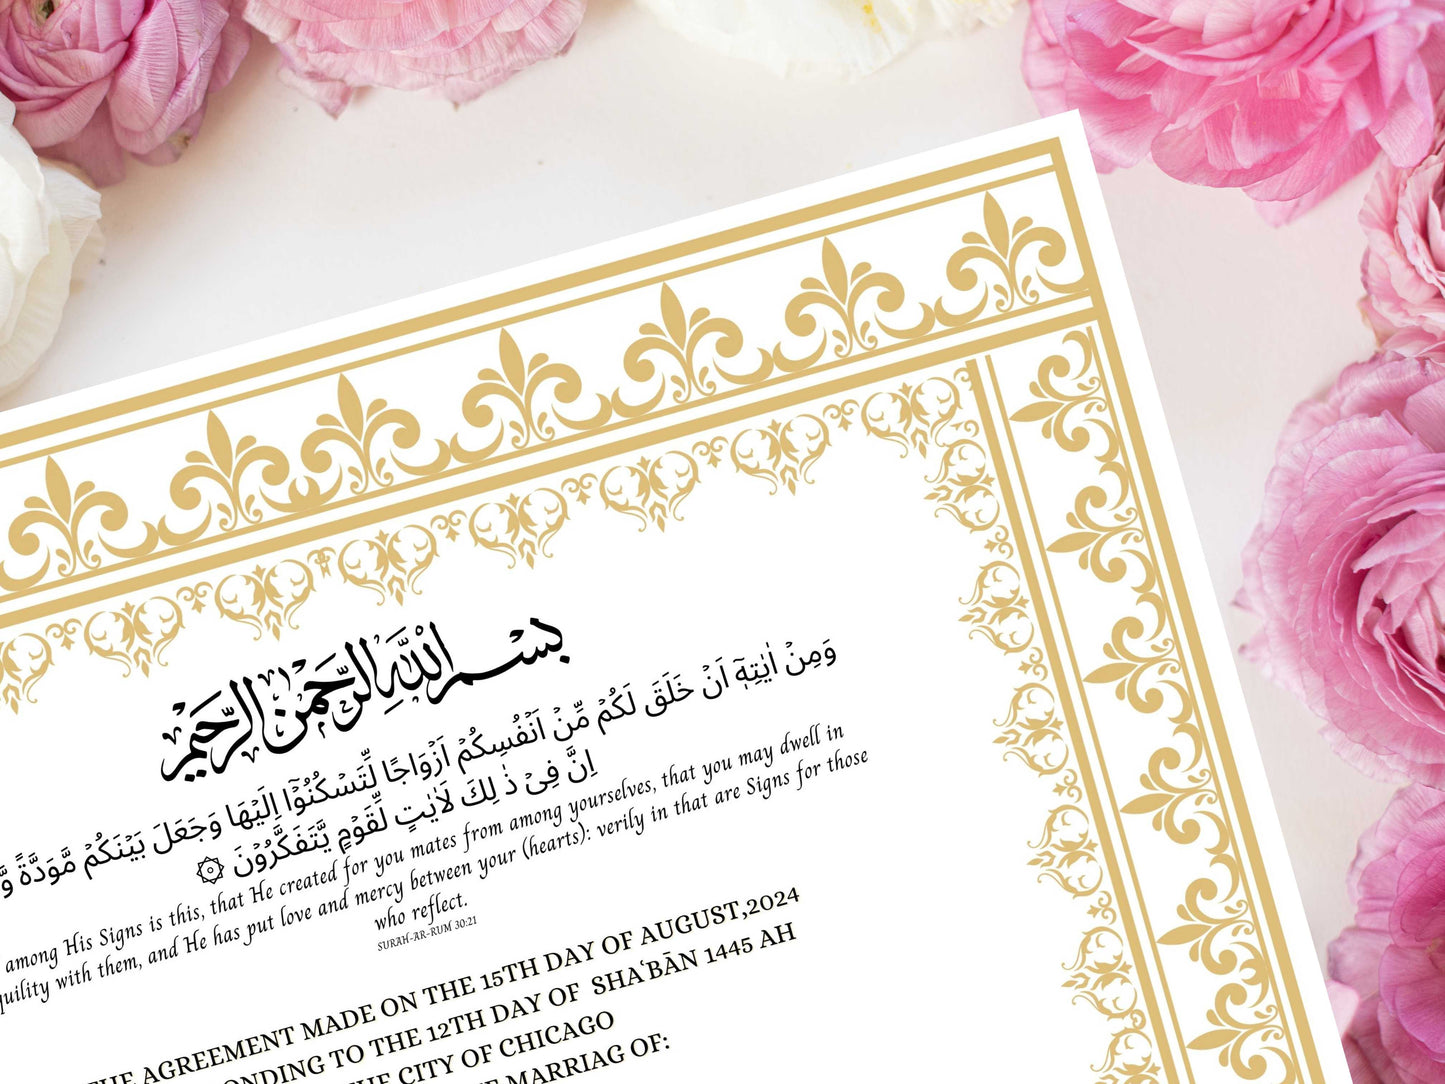 بسم الله الرحمن الرحيم
وَمِنْ اٰيٰتِهٖٓ اَنْ خَلَقَ لَكُمْ مِّنْ اَنْفُسِكُمْ اَزْوَاجًا لِّتَسْكُنُوْٓا اِلَيْهَا وَجَعَلَ بَيْنَكُمْ مَّوَدَّةً
اِنَّ فِيْ ذٰلِكَ لَاٰيٰتٍ لِّقَوْمٍ يَّتَفَكَّرُوْنَ ۞
among His Signs is this, that He created for you mates from among yourselves, that you may dwell in
with them, and He has put love and mercy between your (hearts): verily in that are Signs for those
who reflect.
SURAH-AR-RUM 30:21
AGREEMENT MADE ON THE 15TH DAY OF AUGUST,2024
TO THE 12TH DAY OF SHAʿBĀN 1445 AH
CITY OF CHICAGO
MARRIAG OF: